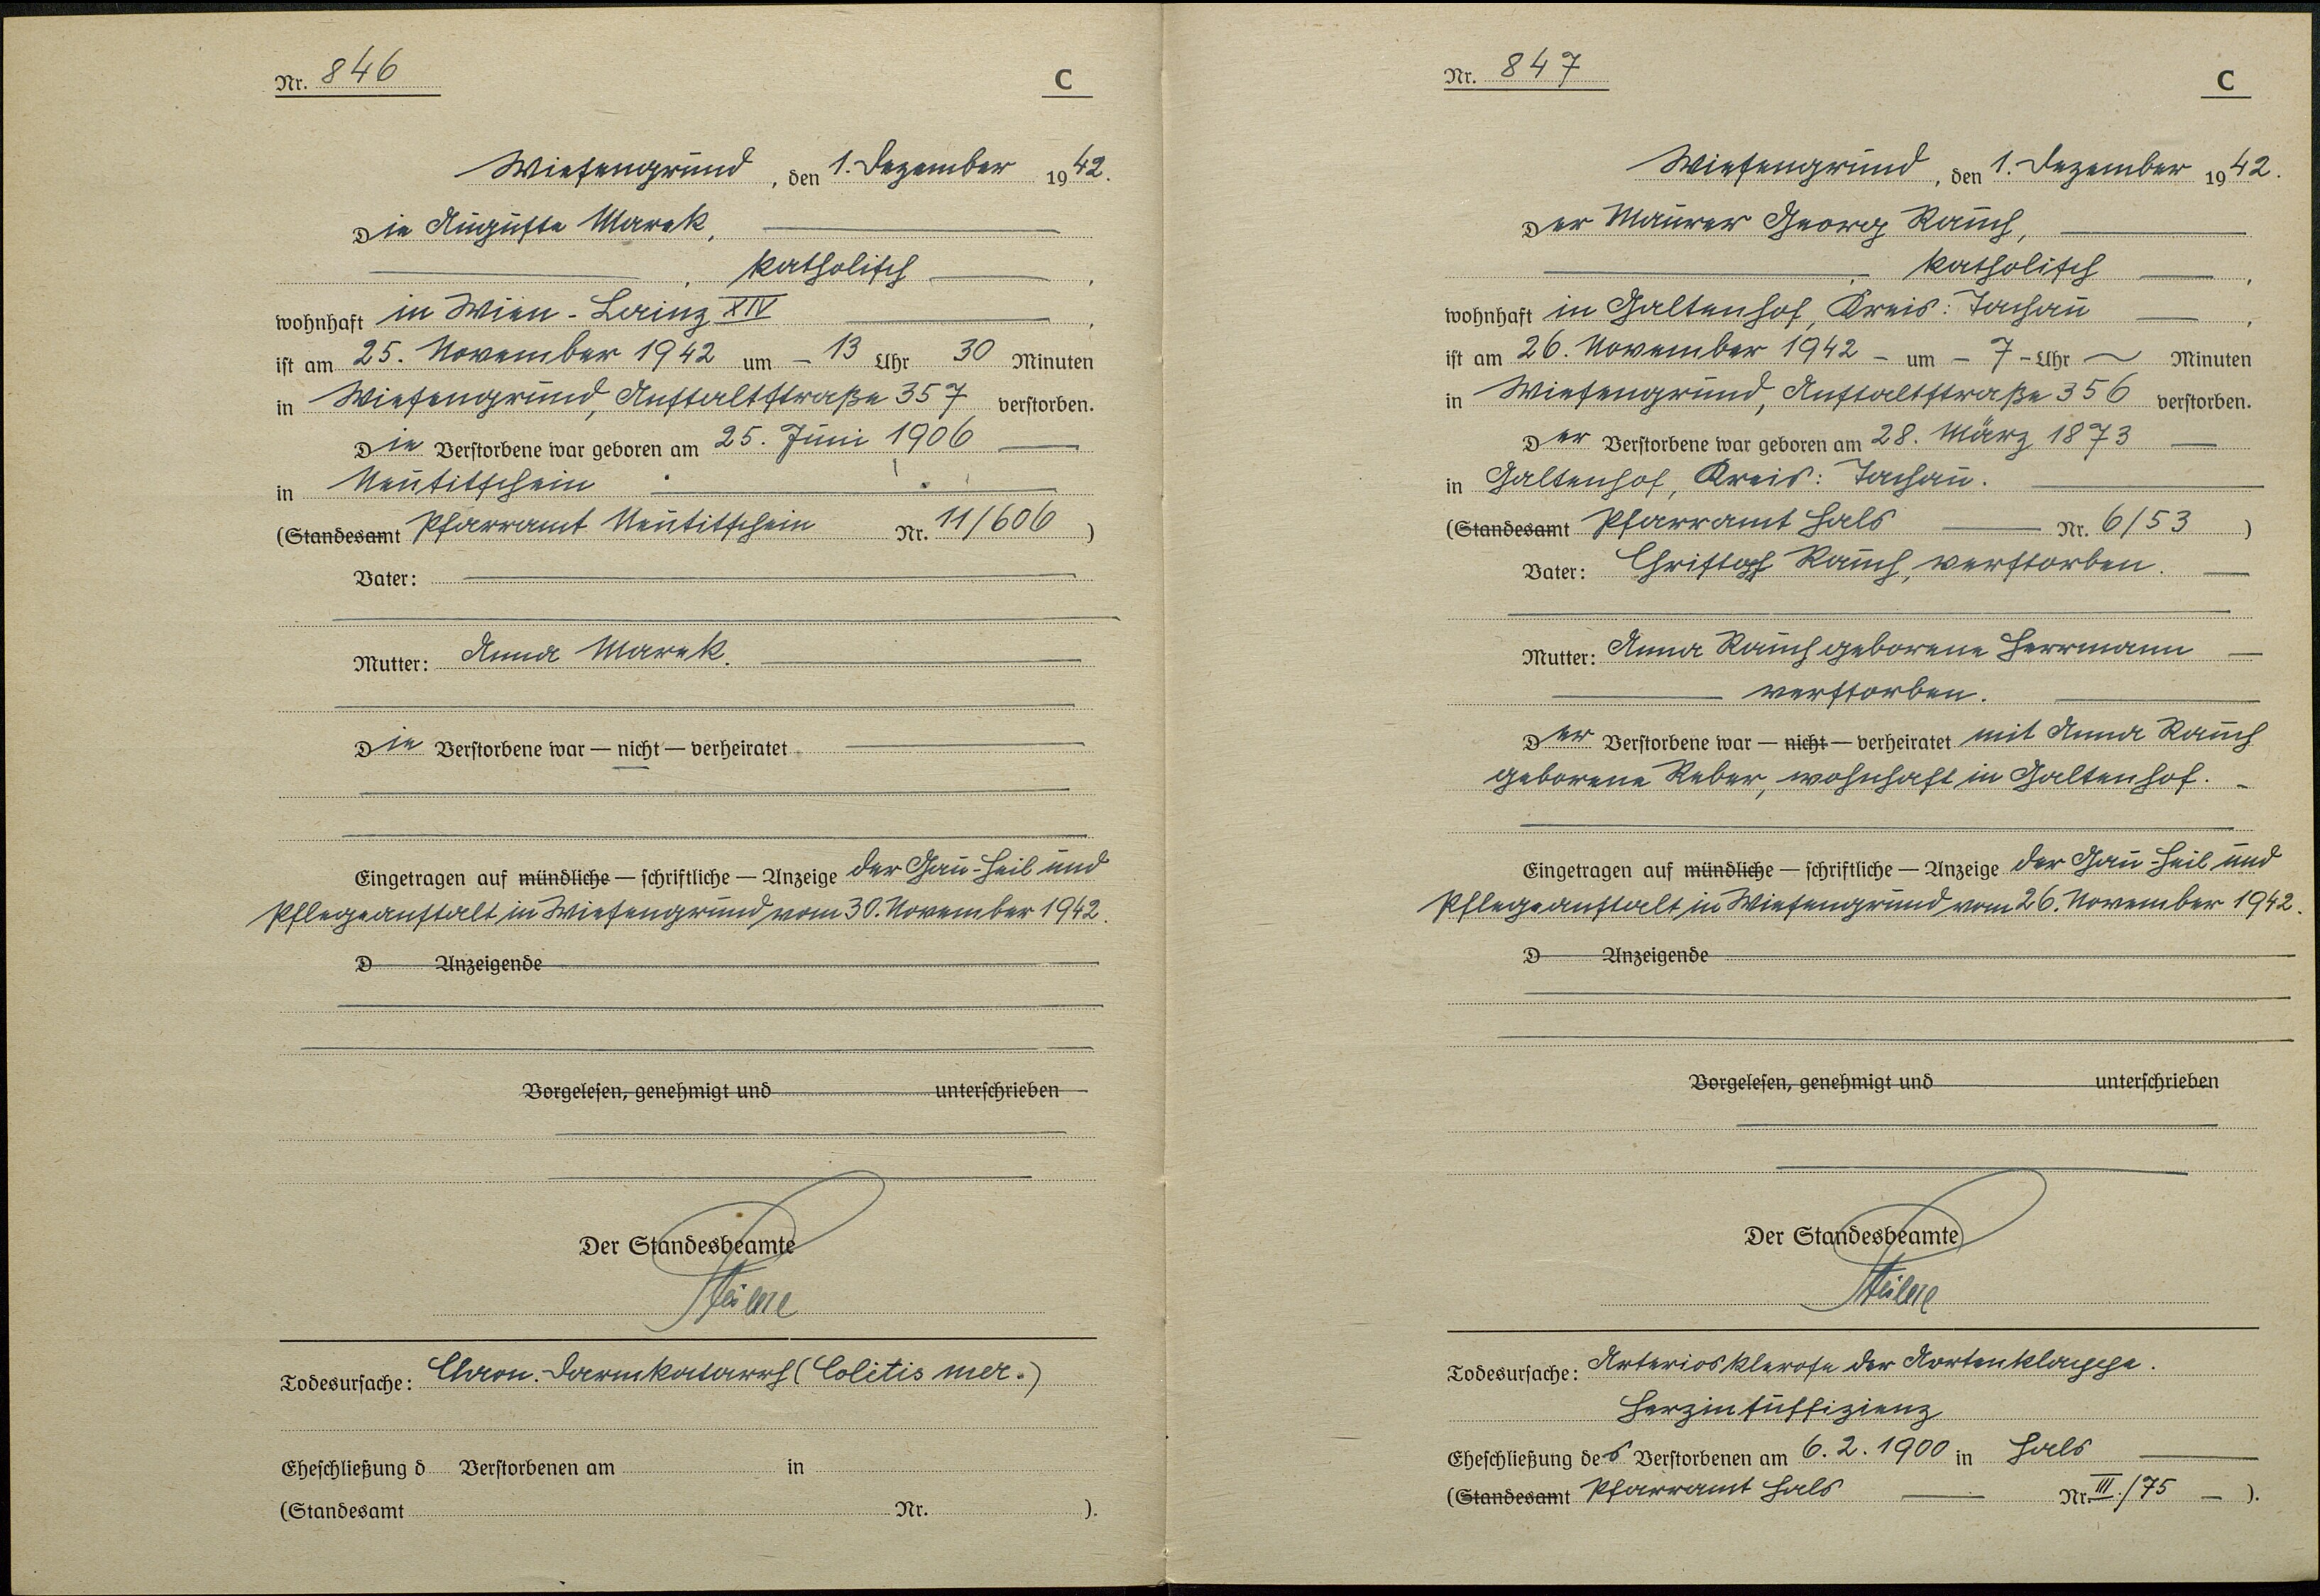 Nr. 846
C
Wiesengrund, den 1. Dezember 1942.
Die Auguste Marek,
, katholisch ,
wohnhaft in Wien - Lainz XIV ,
ist am 25. November 1942 um - 13 Uhr 30 Minuten
in Wiesengrund, Anstaltstraße 357 verstorben.
Die Verstorbene war geboren am 25. Juni 1906
in Neutitschein
(Standesamt Pfarramt Neutitschein Nr. 11/606 )
Vater:
Mutter: Anna Marek.
Die Verstorbene war — nicht — verheiratet
Eingetragen auf mündliche — schriftliche — Anzeige der Gau-Heil und
Pflegeanstalt in Wiesengrund vom 30. November 1942.
D Anzeigende
Vorgelesen, genehmigt und unterschrieben
Der Standesbeamte
Todesursache: Chron. Darmkatarrh (Colitis mer.)
Eheschließung d Verstorbenen am in
(Standesamt Nr. ).
Nr. 847
C
Wiesengrund, den 1. Dezember 1942.
Der Maurer Georg Rauch,
, katholisch ,
wohnhaft in Galtenhof, Kreis: Tachau ,
ist am 26. November 1942 - um - 7 - Uhr Minuten
in Wiesengrund, Anstaltstraße 356 verstorben.
Der Verstorbene war geboren am 28. März 1873
in Galtenhof, Kreis: Tachau.
(Standesamt Pfarramt Hals Nr. 6/53 )
Vater: Christoph Rauch, verstorben.
Mutter: Anna Rauch geborene Herrmann
verstorben.
Der Verstorbene war — nicht — verheiratet mit Anna Rauch
geborene Reber, wohnhaft in Galtenhof. -
Eingetragen auf mündliche — schriftliche — Anzeige der Gau-Heil und
Pflegeanstalt in Wiesengrund vom 26. November 1942.
D Anzeigende
Vorgelesen, genehmigt und unterschrieben
Der Standesbeamte
Todesursache: Arteriosklerose der Aortenklappe.
Herzinsuffizienz
Eheschließung des Verstorbenen am 6. 2. 1900 in Hals
(Standesamt Pfarramt Hals Nr. III./75 - ).